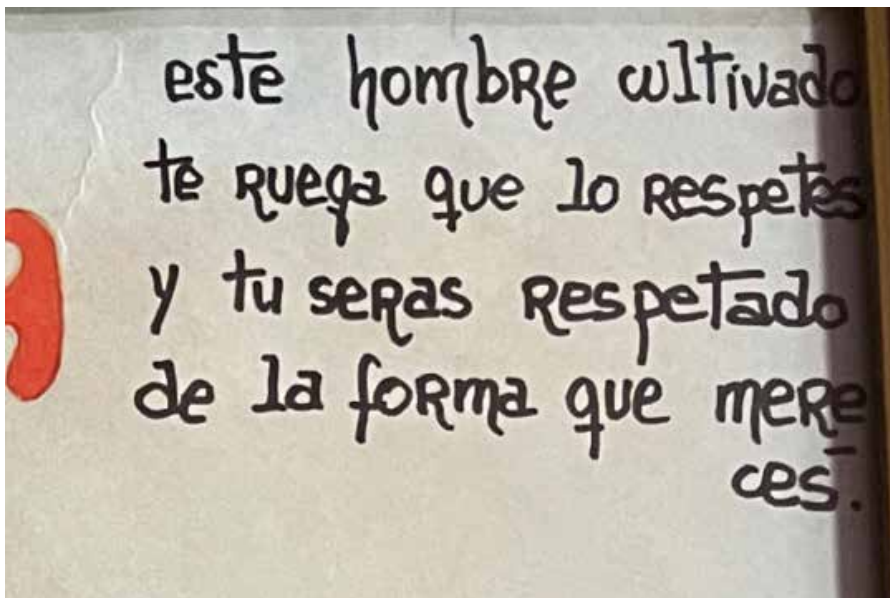 este hombRe cultivado
te Ruega que lo Respetes
y tu seRas Respetado
de la foRma que meRe
ces.